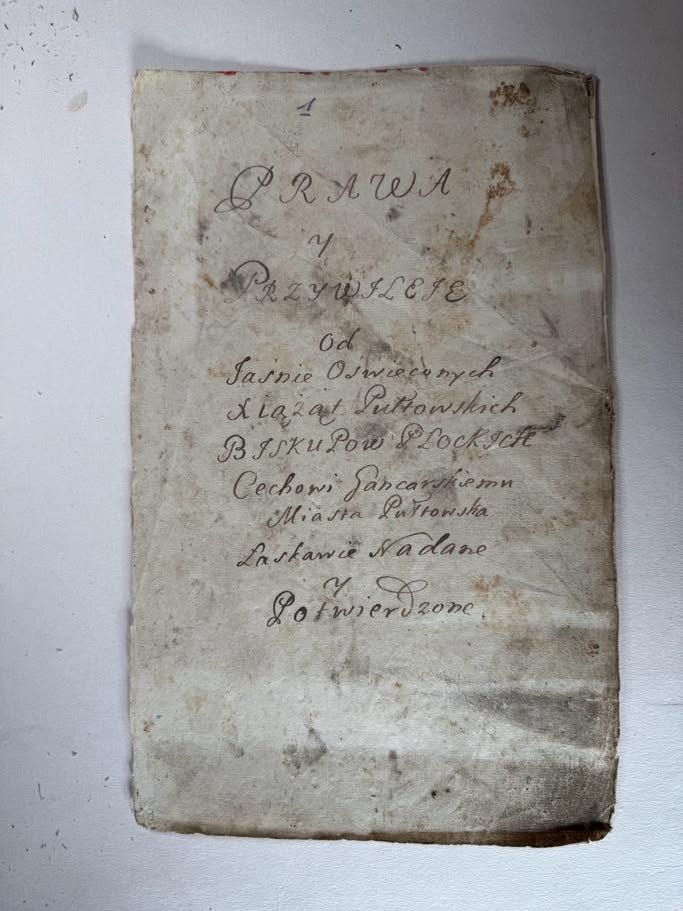 1
PRAWA
y
PRZYWILEIE
Od
Jaśnie Oświeconych
Xiążąt Pułtowskich
BISKUPOW PŁOCKICH
Cechowi Gancarskiemu
Miasta Pułtowska
Łaskawie Nadane
y
Potwierdzone.